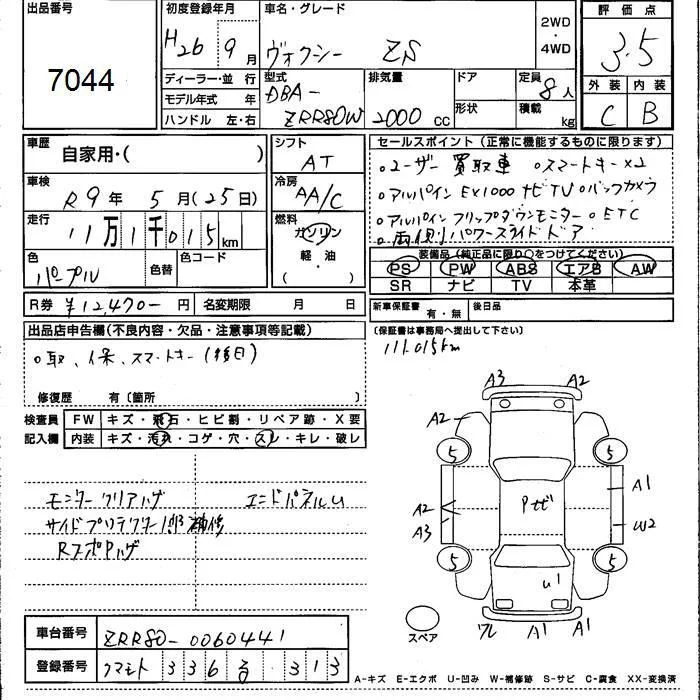 出品番号
7044
初度登録年月
H26 9月
車名・グレード
ヴォクシー ZS
2WD
・
4WD
評価点
3.5
外装 内装
C B
ディーラー・並行
モデル年式 年
ハンドル 左・右
型式
DBA-
ZRR80W
排気量
2000 cc
ドア
形状
定員
8人
積載
kg
車歴
自家用・( )
車検
R9年 5月(25日)
走行
11万1千015km
色
パープル
色替
色コード
シフト
AT
冷房
AA/C
燃料
ガソリン
・
軽油
( )
セールスポイント(正常に機能するものに限ります)
○ユーザー買取車 ○スマートキー×2
○アルパインEX1000ナビTV○バックカメラ
○アルパインフリップダウンモニター○ETC
○両側パワースライドドア
装備品(純正品に限り○をつけてください)
PS PW ABS エアB AW
SR ナビ TV 本革
R券 ¥12,470-円
名変期限 月 日
新車保証書 有・無
後日品
(保証書は事務局へ提出して下さい)
111,015km
出品店申告欄(不良内容・欠品・注意事項等記載)
○取、保、スマートキー(後日)
修復歴 有〔箇所 〕
検査員
記入欄
FW キズ・飛石・ヒビ割・リペア跡・X要
内装 キズ・汚れ・コゲ・穴・スレ・キレ・破レ
モニタークリアハゲ エンドパネルU
サイドプロテクター1部補修
RスポPハゲ
A3 A2
A2
5 5
A2
A3
A1
W2
Pナビ
5 5
U1
スペア
ワレ A1 A1
車台番号 ZRR80-0060441
登録番号 クマモト 336 る 313
A-キズ E-エクボ U-凹み W-補修跡 S-サビ C-腐食 XX-変換済